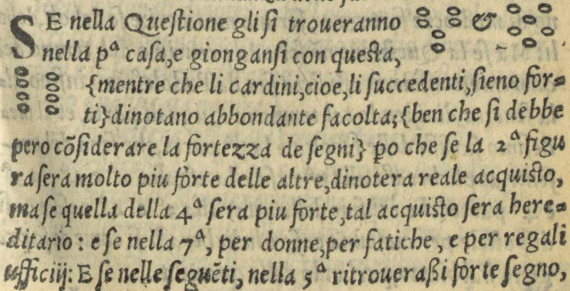 SE nella Questione gli si troueranno & 
nella pª casa, e giongansi con questa,
{mentre che li cardini, cioe, li succedenti, sieno for-
ti} dinotano abbondante facolta; {ben che si debbe
pero cōsiderare la fortezza de segni} po che se la 2ª figu
ra sera molto piu forte delle altre, dinotera reale acquisto,
ma se quella della 4ª sera piu forte, tal acquisto sera here-
ditario: e se nella 7ª, per donne, per fatiche, e per regali
ufficiij: E se nelle seguēti, nella 5ª ritrouerassi forte segno,